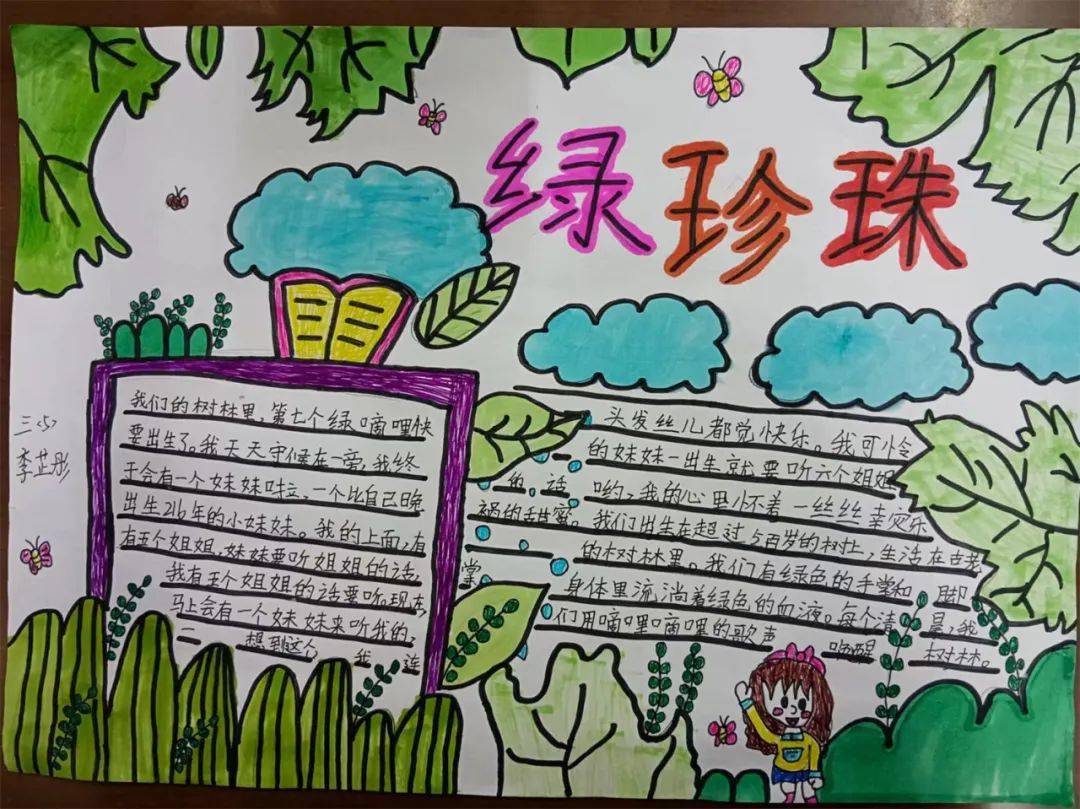 绿珍珠
三<5>
李芷彤
我们的树林里,第七个绿嘀哩快
要出生了。我天天守候在一旁,我终
于会有一个妹妹啦,一个比自己晚
出生216年的小妹妹。我的上面,有
有五个姐姐,妹妹要听姐姐的话,
我有五个姐姐的话要听。现在,
马上会有一个妹妹来听我的,
一想到这个 我 连
头发丝儿都觉快乐。我可怜
的妹妹一出生就要听六个姐姐
的 话 哟,我的心里怀着一丝丝幸灾乐
祸的甜蜜。我们出生在超过5百岁的树上,生活在古老
的树林里。我们有绿色的手掌和 脚掌
身体里流淌着绿色的血液。每个清晨,我
们用嘀哩嘀哩的歌声 唤醒 树林。